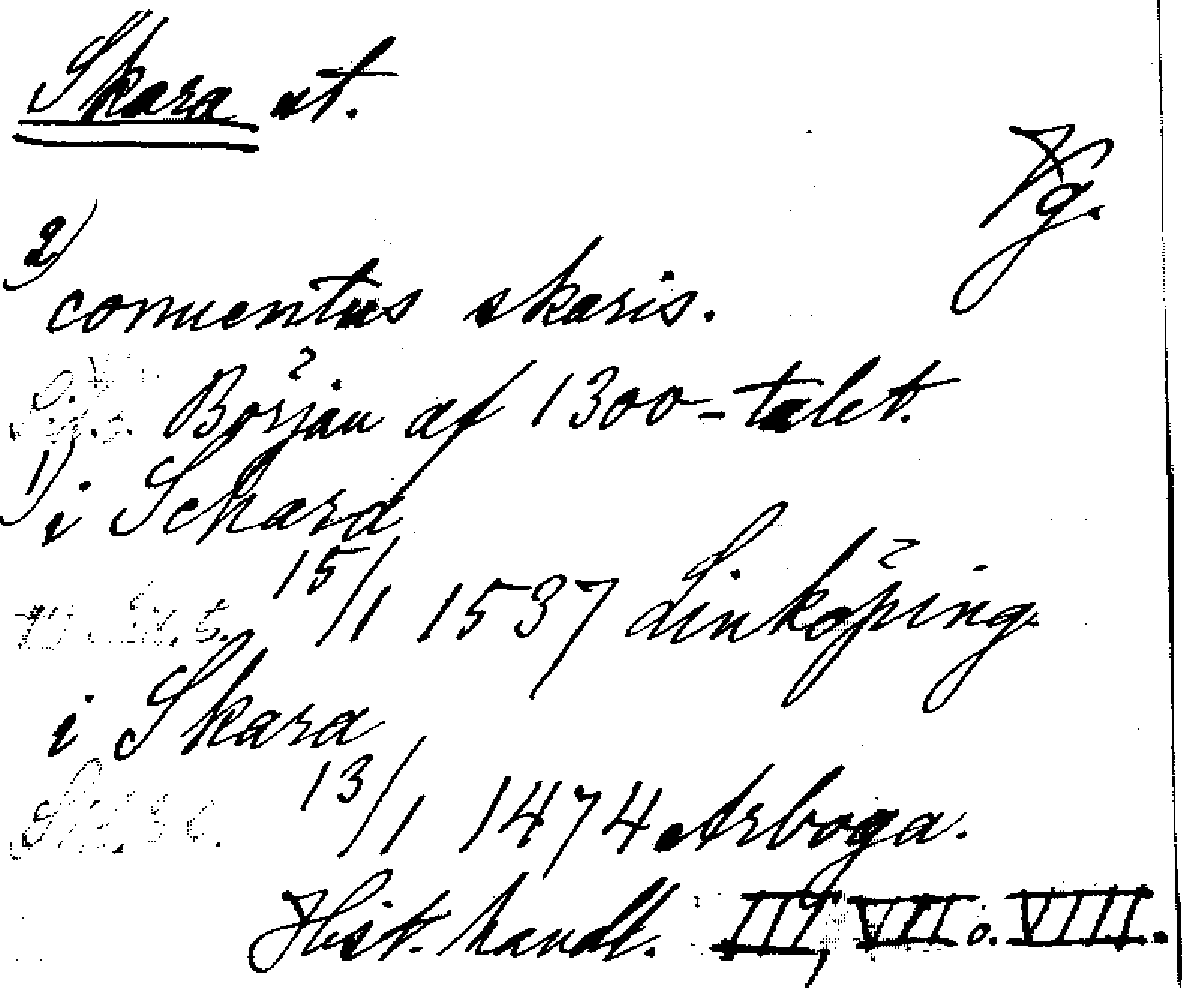 Skara st.
Vg.
2)
conuentus skaris.
Början af 1300-talet.
1)
i Schara
15/1 1537 Linköping.
i Skara
13/1 1474 Arboga.
Hist. handl. III, VII o. VIII.